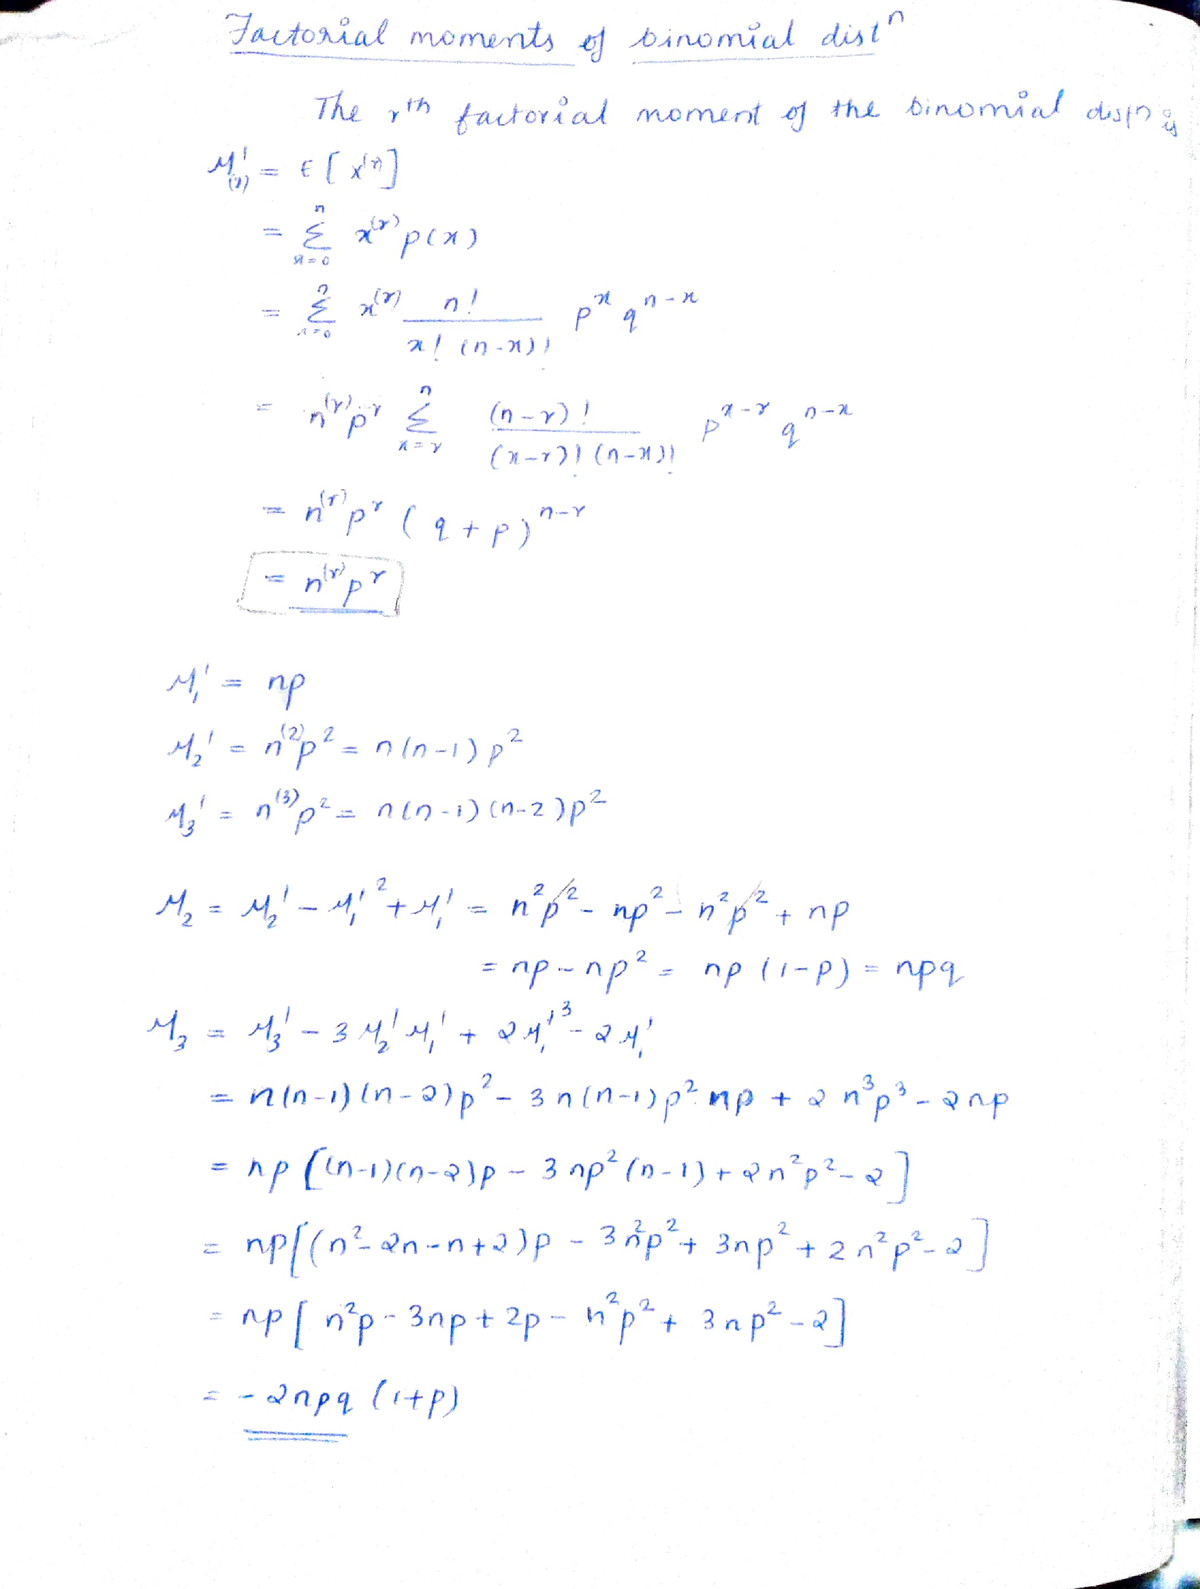 Factorial moments of binomial distⁿ
The rᵗʰ factorial moment of the binomial distn is
μ'₍ᵣ₎ = E[x⁽ʳ⁾]
= Σₓ₌₀ⁿ x⁽ʳ⁾ p(x)
= Σₓ₌₀ⁿ x⁽ʳ⁾ n! / x! (n-x)! pˣ qⁿ⁻ˣ
= n⁽ʳ⁾pʳ Σₓ₌ᵣⁿ (n-r)! / (x-r)! (n-x)! pˣ⁻ʳ qⁿ⁻ˣ
= n⁽ʳ⁾pʳ (q+p)ⁿ⁻ʳ
= n⁽ʳ⁾pʳ
μ₁' = np
μ₂' = n⁽²⁾p² = n(n-1)p²
μ₃' = n⁽³⁾p² = n(n-1)(n-2)p²
μ₂ = μ₂' - μ₁'² + μ₁' = n²p² - np² - n²p² + np
= np - np² = np (1-p) = npq
μ₃ = μ₃' - 3μ₂'μ₁' + 2μ₁'³ - 2μ₁'
= n(n-1)(n-2)p² - 3n(n-1)p² np + 2n³p³ - 2np
= np[(n-1)(n-2)p - 3np²(n-1) + 2n²p² - 2]
= np[(n²-2n-n+2)p - 3n²p² + 3np² + 2n²p² - 2]
= np[n²p - 3np + 2p - n²p² + 3np² - 2]
= -2npq (1+p)